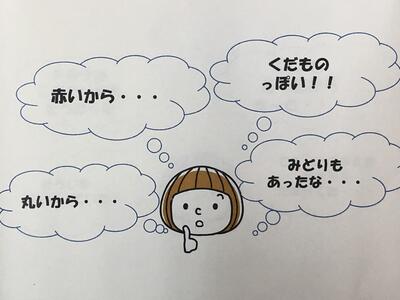 赤いから・・・
くだもの
っぽい！！
丸いから・・・
みどりも
あったな・・・